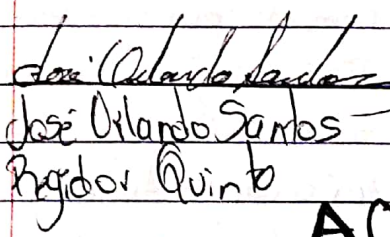 José Orlando Santos
José Orlando Santos
Regidor Quinto
AC